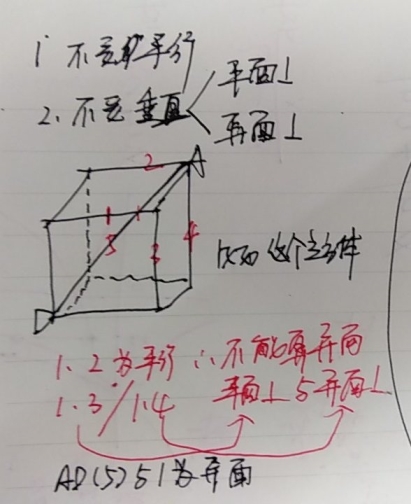 1 不是平行
2. 不是垂直 平面⊥
再面⊥
2 A
1 1
5 3 4
D
比如 这个立方体
1、2为平行 ∴不能算异面
1.3 / 1.4 平面⊥ 与异面⊥
AD(5)与1为异面